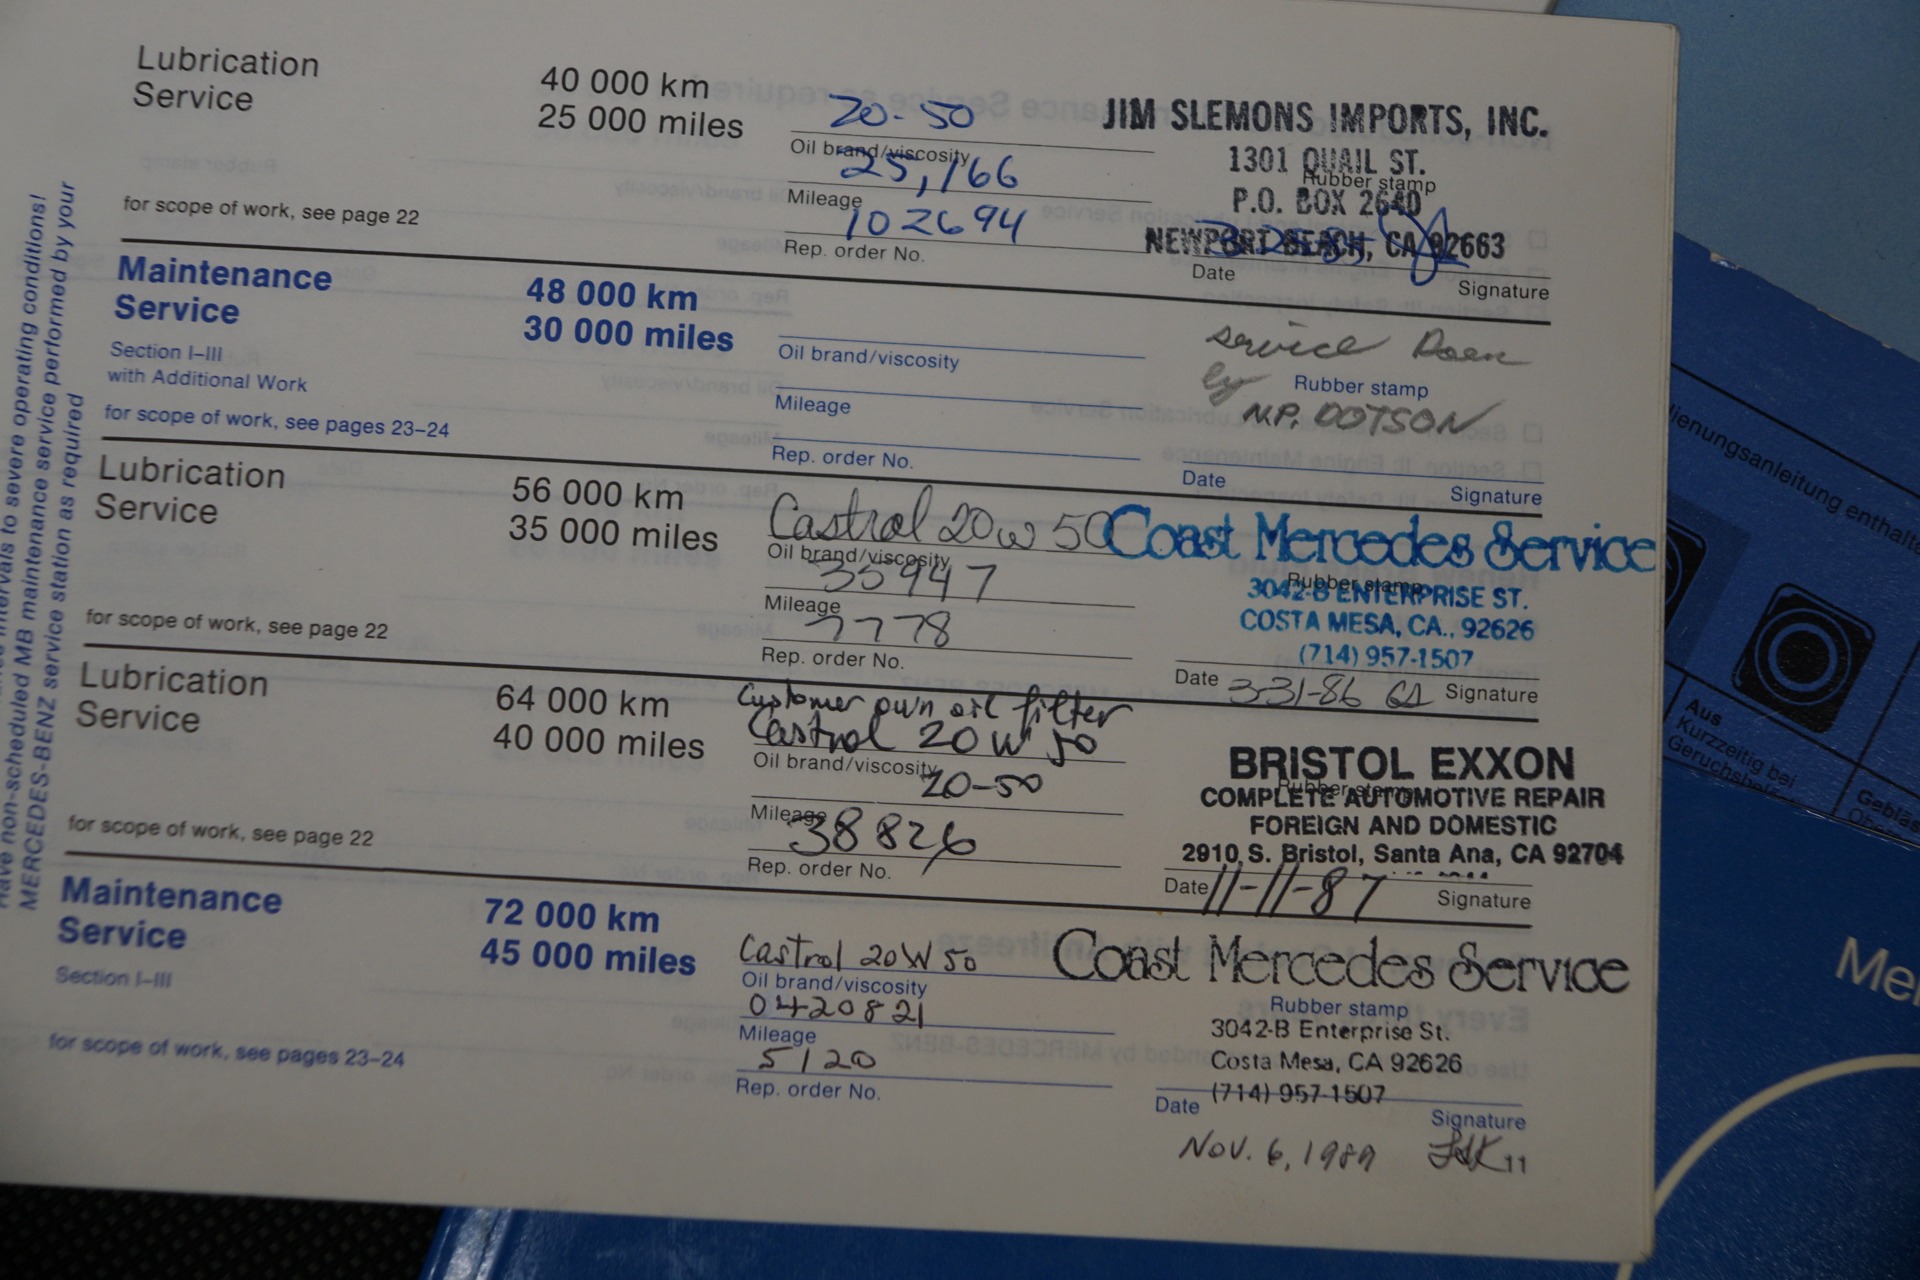 Lubrication
Service
40 000 km
25 000 miles
for scope of work, see page 22
20-50
Oil brand/viscosity
25,166
Mileage
102694
Rep. order No.
JIM SLEMONS IMPORTS, INC.
1301 QUAIL ST.
Rubber stamp
P.O. BOX 2640
NEWPORT BEACH, CA 92663
Date
Signature
Maintenance
Service
Section I–III
with Additional Work
for scope of work, see pages 23–24
48 000 km
30 000 miles
Oil brand/viscosity
Mileage
Rep. order No.
service Doen
by
Rubber stamp
N.P. DOTSON
Date
Signature
Lubrication
Service
56 000 km
35 000 miles
for scope of work, see page 22
Castrol 20w 50
Oil brand/viscosity
35947
Mileage
7778
Rep. order No.
Coast Mercedes Service
Rubber stamp
3042-B ENTERPRISE ST.
COSTA MESA, CA., 92626
(714) 957-1507
Date 3-31-86
Signature
Lubrication
Service
64 000 km
40 000 miles
for scope of work, see page 22
Customer own oil filter
Castrol 20W 50
Oil brand/viscosity
20-50
Mileage
38826
Rep. order No.
BRISTOL EXXON
Rubber stamp
COMPLETE AUTOMOTIVE REPAIR
FOREIGN AND DOMESTIC
2910 S. Bristol, Santa Ana, CA 92704
Date 11-11-87
Signature
Maintenance
Service
Section I–III
for scope of work, see pages 23–24
72 000 km
45 000 miles
Castrol 20W50
Oil brand/viscosity
0420821
Mileage
5120
Rep. order No.
Coast Mercedes Service
Rubber stamp
3042-B Enterprise St.
Costa Mesa, CA 92626
(714) 957-1507
Date
Signature
Nov. 6, 1989
intervals to severe operating conditions!
Have non-scheduled MB maintenance service performed by your
MERCEDES-BENZ service station as required
ienungsanleitung enthalte
Aus
Kurzzeitig bei
Mer